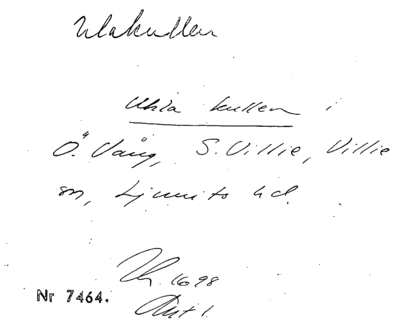 Ulakullen
Uhla kullen i
Ö. Vång, S. Villie, Villie
sn, Ljunits hd.
Lk. 1698
Nr 7464. Akt 1.